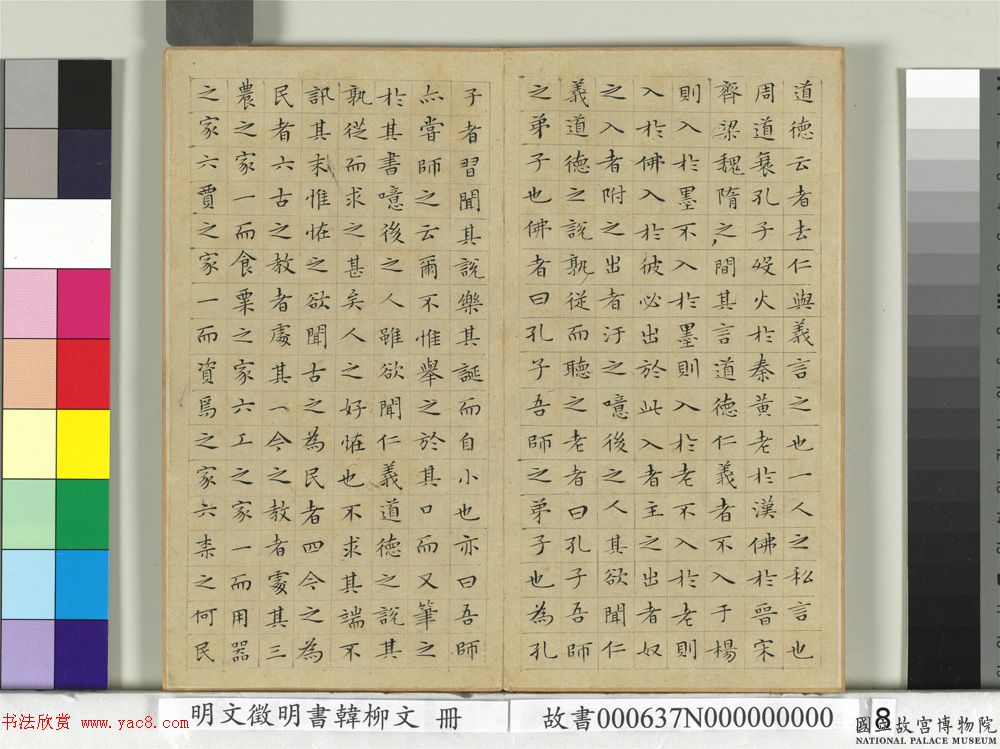 道德云者去仁與義言之也一人之私言也
周道衰孔子歿火於秦黃老於漢佛於晉宋
齊梁魏隋之間其言道德仁義者不入于楊
則入於墨不入於墨則入於老不入於老則
入於佛入於彼必出於此入者主之出者奴
之入者附之出者汙之噫後之人其欲聞仁
義道德之說孰從而聽之老者曰孔子吾師
之弟子也佛者曰孔子吾師之弟子也為孔
子者習聞其說樂其誕而自小也亦曰吾師
亦嘗師之云爾不惟舉之於其口而又筆之
於其書噫後之人雖欲聞仁義道德之說其
孰從而求之甚矣人之好恠也不求其端不
訊其末惟恠之欲聞古之為民者四今之為
民者六古之教者處其一今之教者處其三
農之家一而食粟之家六工之家一而用器
之家六賈之家一而資焉之家六柰之何民
明文徵明書韓柳文 冊
故書000637N000000000
8
國立故宮博物院
NATIONAL PALACE MUSEUM
书法欣赏 www.yac8.com